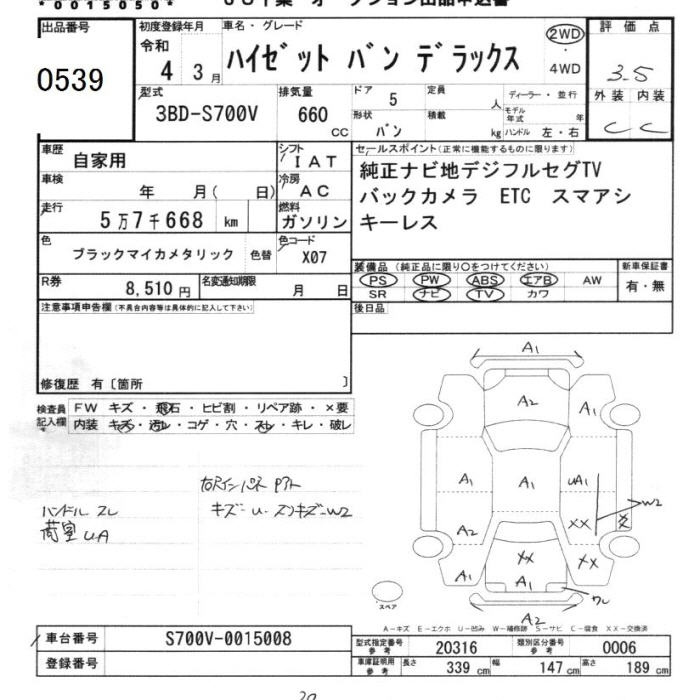 *0015050*
出品番号
0539
初度登録年月
令和
4 3月
車名・グレード
ハイゼット バン デラックス
2WD
4WD
評価点
3.5
外装 内装
C C
型式
3BD-S700V
排気量
660 CC
ドア 5
形状 バン
定員 人
積載 kg
ディーラー・並行
モデル年式 年
ハンドル 左・右
車歴
自家用
シフト
IAT
車検
年 月( 日)
冷房
AC
走行
5万7千668 km
燃料
ガソリン
色
ブラックマイカメタリック 色替
色コード
X07
R券
8,510円
名変通知期限
月 日
セールスポイント(正常に機能するものに限ります)
純正ナビ地デジフルセグTV
バックカメラ ETC スマアシ
キーレス
装備品(純正品に限り○をつけてください)
PS PW ABS エアB AW
SR ナビ TV カワ
新車保証書
有・無
後日品
注意事項申告欄(不具合内容等は具体的に記入して下さい)
修復歴 有〔箇所 〕
検査員記入欄
FW キズ・飛石・ヒビ割・リペア跡・×要
内装 キズ・汚レ・コゲ・穴・スレ・キレ・破レ
ハンドル スレ
荷室 UA
右Rインパネ Pアト
キズ-U-スリキズ-W2
A1
A2
A1
A1
A1
UA1
W2
A2
XX
XX
XX
XX
A1
A1
ワレ
A2
スペア
A-キズ E-エクボ U-凹み W-補修跡 S-サビ C-腐食 XX-交換済
車台番号
S700V-0015008
登録番号
型式指定番号 参考
20316
類別区分番号 参考
0006
車庫証明用 参考
長さ 339 cm
幅 147 cm
高さ 189 cm